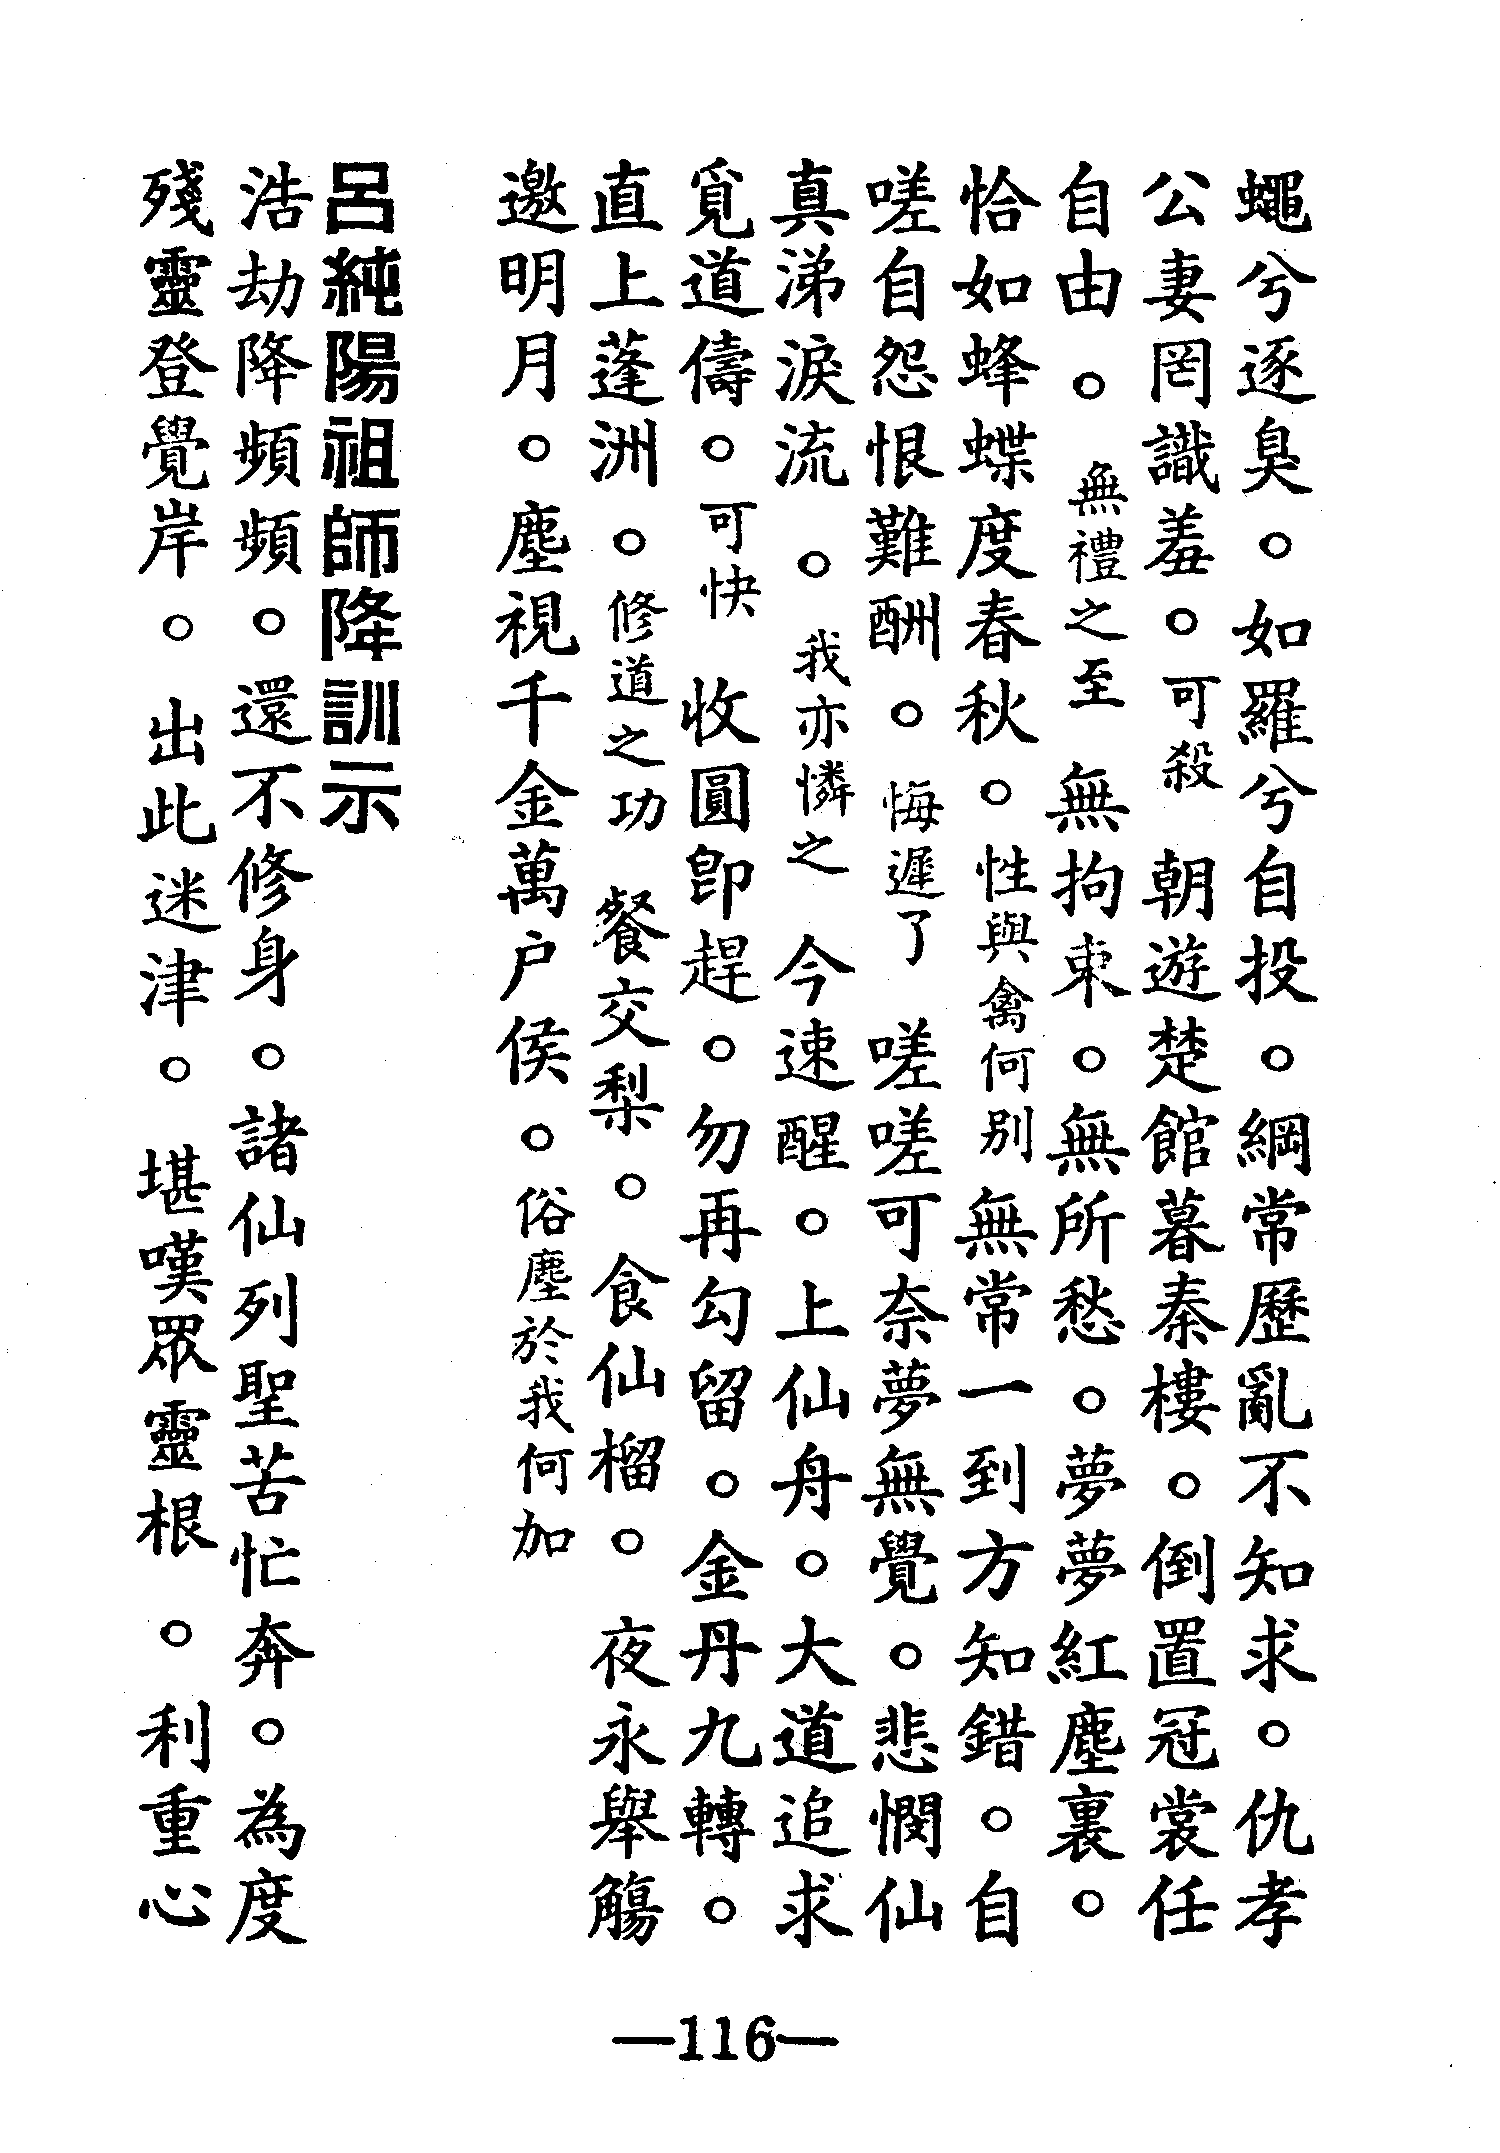 蠅兮逐臭。如羅兮自投。綱常歷亂不知求。仇孝
公妻罔識羞。可殺 朝遊楚館暮秦樓。倒置冠裳任
自由。無禮之至 無拘束。無所愁。夢夢紅塵裏。
恰如蜂蝶度春秋。性與禽何別 無常一到方知錯。自
嗟自怨恨難酬。悔遲了 嗟嗟可奈夢無覺。悲憫仙
真涕淚流。我亦憐之 今速醒。上仙舟。大道追求
覓道儔。可快 收圓卽趕。勿再勾留。金丹九轉。
直上蓬洲。修道之功 餐交梨。食仙榴。夜永舉觴
邀明月。塵視千金萬户侯。俗塵於我何加
呂純陽祖師降訓示
浩劫降頻頻。還不修身。諸仙列聖苦忙奔。為度
殘靈登覺岸。出此迷津。堪嘆眾靈根。利重心
—116—